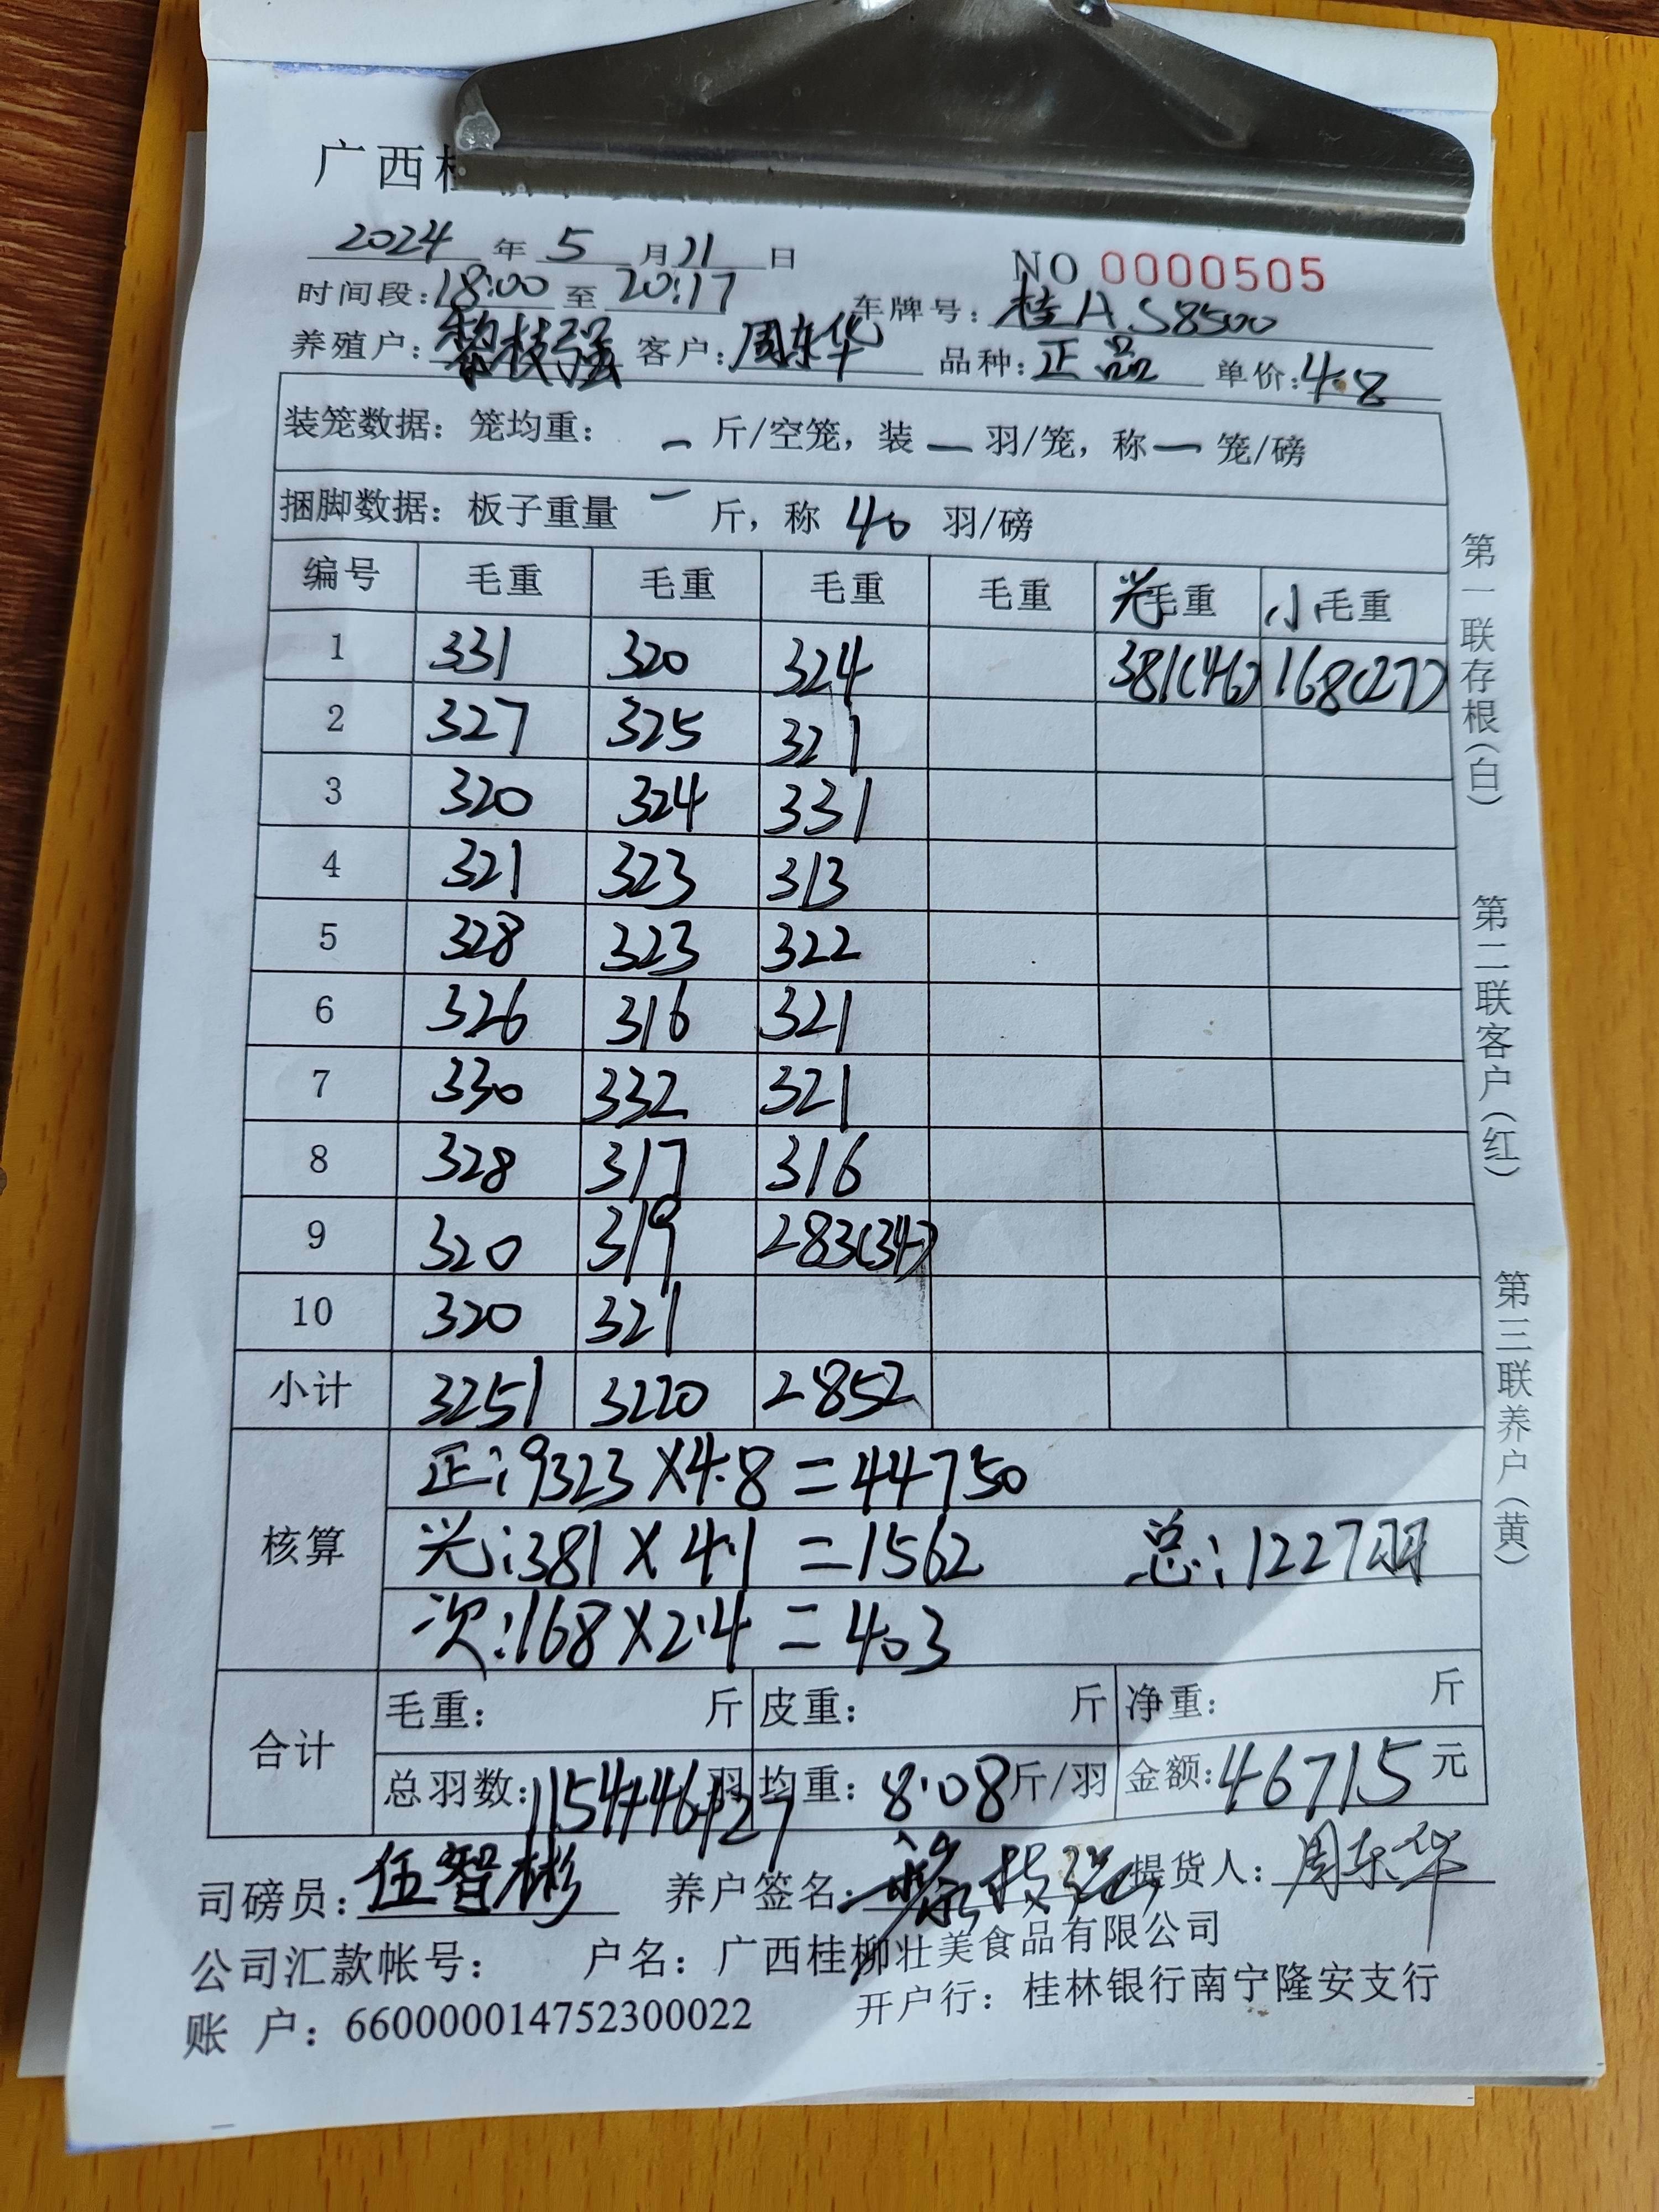 广西桂
2024年5月11日
NO 0000505
时间段:18:00至20:17 车牌号:桂A S8500
养殖户:黎枝强 客户:周东华 品种:正品 单价:4.8
装笼数据:笼均重: 一 斤/空笼,装一羽/笼,称一笼/磅
捆脚数据:板子重量 一 斤,称 40 羽/磅
编号 毛重 毛重 毛重 毛重 光毛重 小毛重
1 331 320 324 381(46) 168(27)
2 327 325 321
3 320 324 331
4 321 323 313
5 328 323 322
6 326 316 321
7 330 332 321
8 328 317 316
9 320 319 283(34)
10 320 321
小计 3251 3220 2852
核算
正:9323×4.8=44750
光:381×4.1=1562 总:1227羽
次:168×2.4=403
合计
毛重: 斤 皮重: 斤 净重: 斤
总羽数:1154+46+27羽 均重:8.08斤/羽 金额:46715元
司磅员:伍智彬 养户签名:黎枝强 提货人:周东华
公司汇款帐号: 户名:广西桂柳壮美食品有限公司
账 户:660000014752300022 开户行:桂林银行南宁隆安支行
第一联存根(白) 第二联客户(红) 第三联养户(黄)